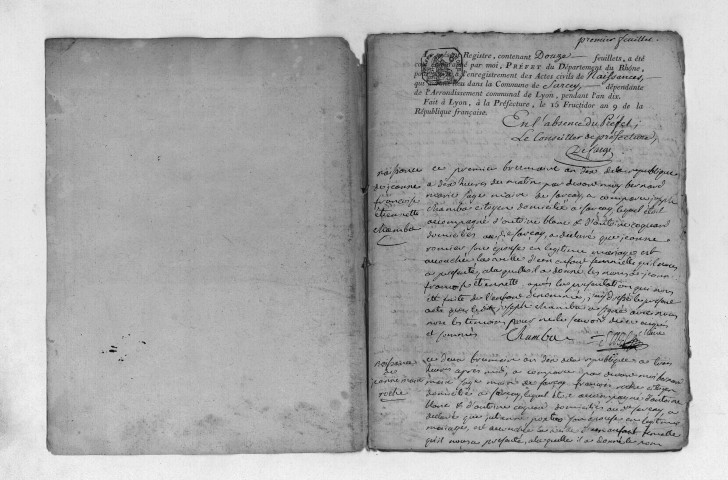 premier feuillet.
Le présent Registre, contenant Douze feuillets, a été
coté et paraphé par moi, PRÉFET du Département du Rhône,
pour servir à l'enregistrement des Actes civils de Naissances
qui auront lieu dans la Commune de Sarcey dépendante
de l'Arrondissement communal de Lyon, pendant l'an dix.
Fait à Lyon, à la Préfecture, le 15 Fructidor an 9 de la
République française.
En l'absence du Préfet,
Le Conseiller de préfecture
naissance
de jeanne
françoise
etiennette
chamba
ce premier brumaire an dix de la republique
a dix heures du matin par devant moy bernard
marie maire de sarcey, a comparu joseph
chamba citoyen domicilié a sarcey lequel etant
accompagné d'antoine blanc & d'antoine
domiciliés au dit sarcey, a déclaré que jeanne
son épouse en legitime mariage est
accouchée la veille d'un enfant femelle qu'il nous a
présenté, a laquelle il a donné les noms de jeanne
françoise etiennette, après la présentation que nous
a été faite de l'enfant dénommé, j'ay dressé le présent
acte que le dit joseph chamba a signé avec nous
non les temoins pour ne le savoir de ce enquis
et sommés
Chamba
naissance
de
jeanne marie
roche
ce deux brumaire an dix de la republique a trois
heures après midi, a comparu par devant moi bernard
marie maire de sarcey françois roche citoyen
domicilié a sarcey, lequel étant accompagné d'antoine
blanc & d'antoine domiciliés au dit sarcey, a
déclaré que son epouse en legitime
mariage, est accouchée d'un enfant femelle
qu'il nous a présenté, a laquelle il a donné le nom